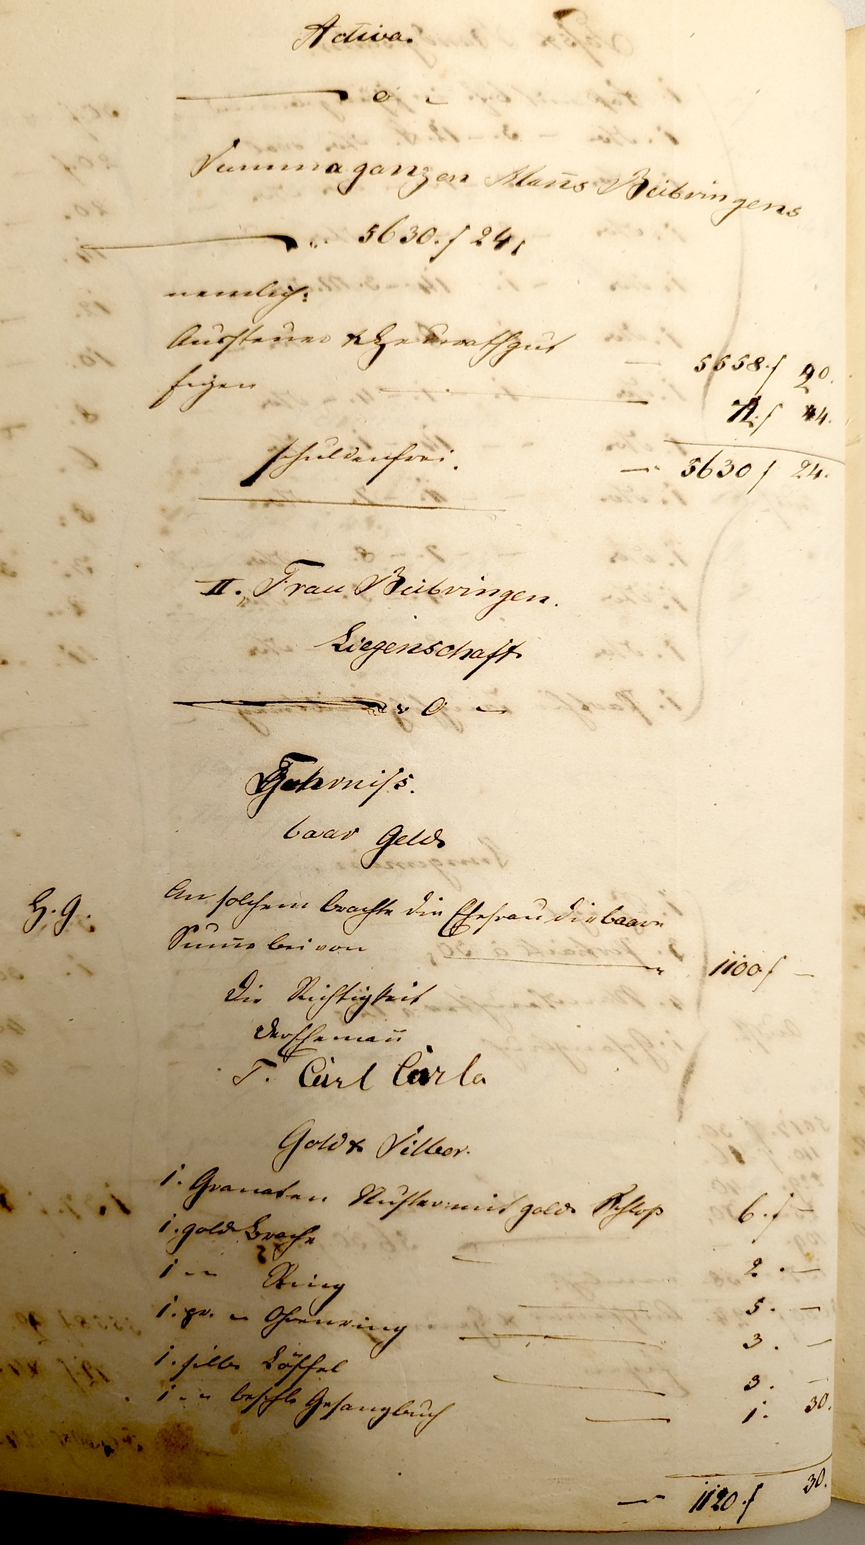 Activa.
— 0 —
Summa ganzen Mañs Beibringens
— 5630. f 24,
nemlich:
Aussteuer & Heurathgut — 5558. f 40.
eigen — 72. f 44.
schuldenfrei. — 5630 f 24.
II. Frau Beibringen.
Liegenschaft
— 0 —
Fahrniss.
baar Geld
H. g.
An solchem brachte die Ehefrau die baare
Sume bei von — 1100 f —
Die Richtigkeit
der Ehemañ
T. Carl Carle
Gold & Silber.
1. Granaten Nuster mit gold. Schloß 6. f —
1. gold Broche — 2. —
1 — Ring — 5. —
1. pr. — Ohrenring — 3. —
1. silb. Löffel — 3. —
1 — beschl. Gesangbuch — 1. 30.
— 1120. f 30.